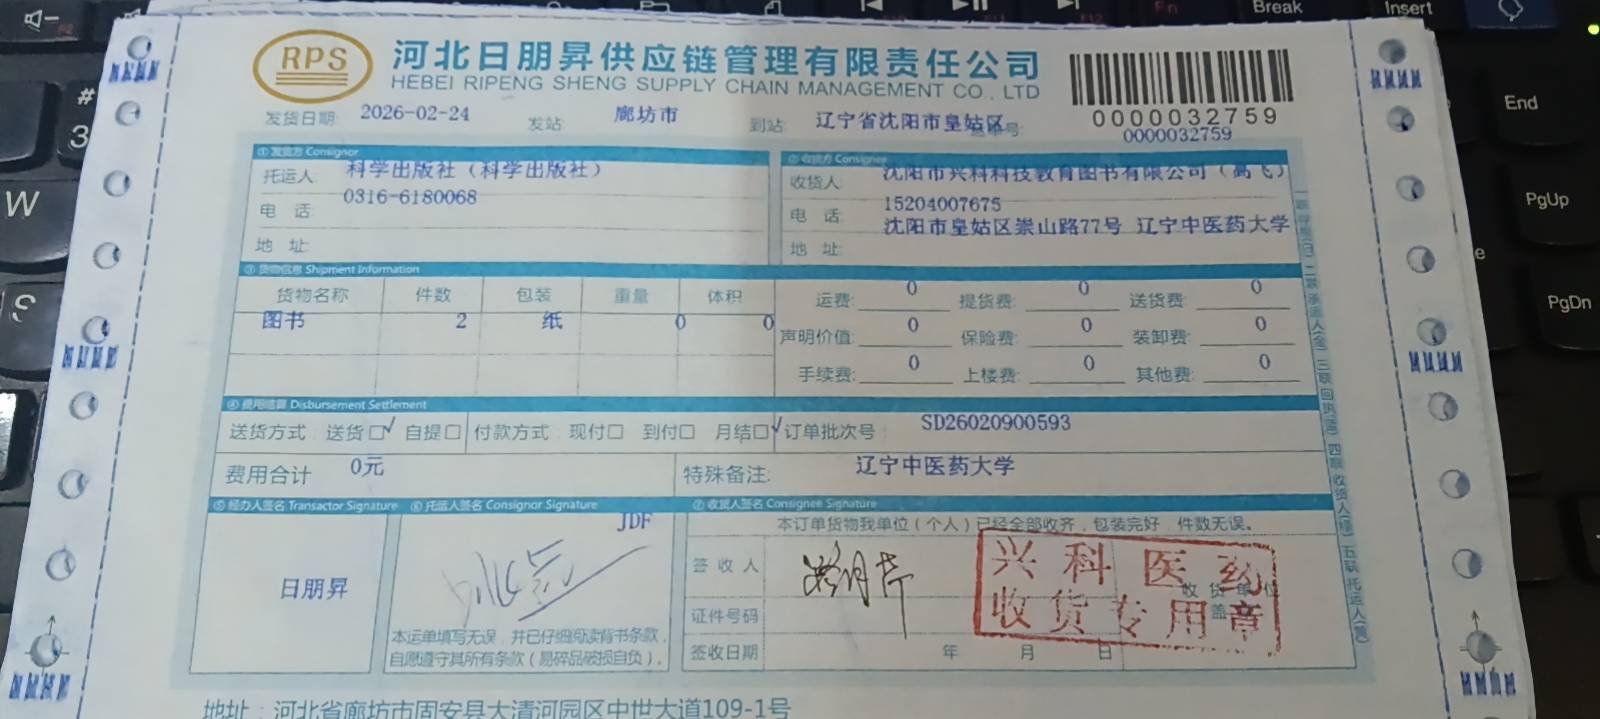 RPS
河北日朋昇供应链管理有限责任公司
HEBEI RIPENG SHENG SUPPLY CHAIN MANAGEMENT CO., LTD
0000032759
发货日期: 2026-02-24 发站: 廊坊市 到站: 辽宁省沈阳市皇姑区 运单号: 0000032759
① 发货方 Consignor
托运人: 科学出版社（科学出版社）
电 话: 0316-6180068
地 址:
② 收货方 Consignee
收货人: 沈阳市兴科科技教育图书有限公司（高飞）
电 话: 15204007675
地 址: 沈阳市皇姑区崇山路77号 辽宁中医药大学
③ 货物信息 Shipment Information
货物名称 件数 包装 重量 体积
图书 2 纸 0 0
运费: 0 提货费: 0 送货费: 0
声明价值: 0 保险费: 0 装卸费: 0
手续费: 0 上楼费: 0 其他费: 0
④ 费用结算 Disbursement Settlement
送货方式: 送货□√ 自提□ 付款方式: 现付□ 到付□ 月结□√ 订单批次号: SD26020900593
费用合计 0元 特殊备注: 辽宁中医药大学
⑤ 经办人签名 Transactor Signature
日朋昇
⑥ 托运人签名 Consignor Signature
JDF
本运单填写无误，并已仔细阅读背书条款，
自愿遵守其所有条款（易碎品破损自负）。
⑦ 收货人签名 Consignee Signature
本订单货物我单位（个人）已经全部收齐，包装完好，件数无误。
签收人
证件号码
签收日期 年 月 日
收货单位
盖章
兴科医药
收货专用章
地址：河北省廊坊市固安县大清河园区中世大道109-1号
#
3
W
S
Fn
Break
Insert
End
PgUp
PgDn